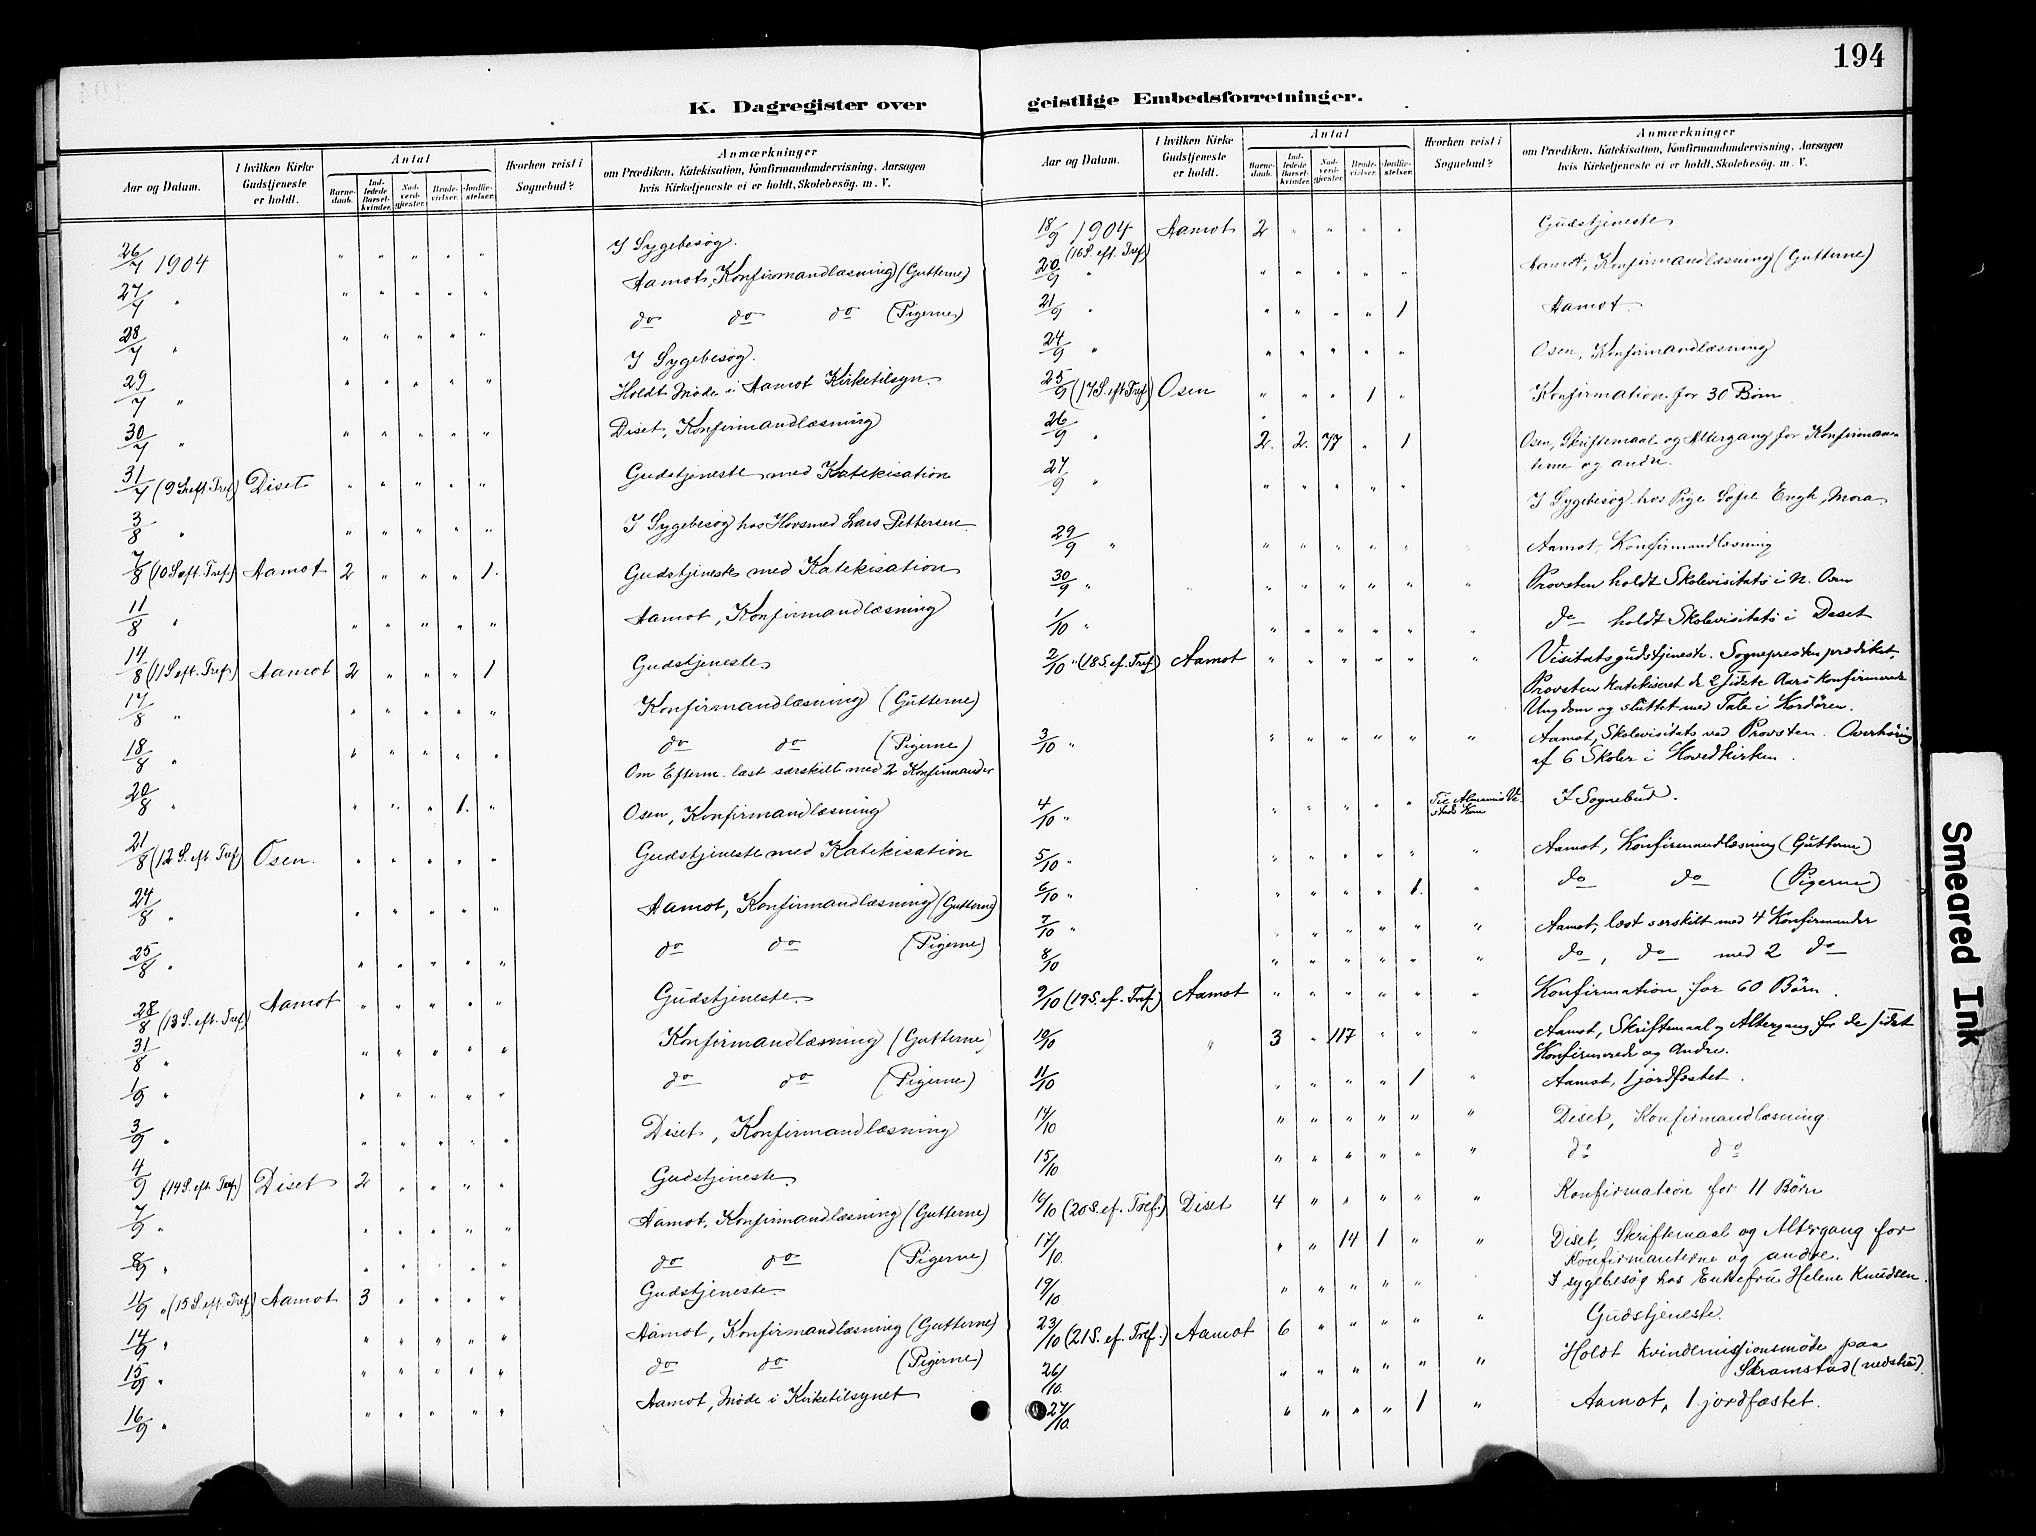 194
K. Dagregister over geistlige Embedsforretninger.
Aar og Datum. | I hvilken Kirke Gudstjeneste er holdt. | Antal | Barnedaab. | Indledede Barselkvinder. | Nadverdgjester. | Brudevielser. | Jordfæstelser. | Hvorhen reist i Sognebud? | Anmærkninger om Prædiken, Katekisation, Konfirmandundervisning, Aarsagen hvis Kirketjeneste ei er holdt, Skolebesøg. m. V.
26/7 1904 " " " " " I Sygebesøg.
27/7 " " " " " " Aamot, Konfirmandlæsning (Gutterne)
28/7 " " " " " " do do do (Pigerne)
29/7 " " " " " " I Sygebesøg.
Holdt Møde i Aamot Kirketilsyn.
30/7 " " " " " " Diset, Konfirmandlæsning
31/7 (9 S. eft. Tref.) Diset " " " " " Gudstjeneste med Katekisation
3/8 " " " " " " I Sygebesøg hos Hovsmed Lars Pettersen
7/8 (10 S. eft. Tref.) Aamot 2 " " " 1. Gudstjeneste med Katekisation
11/8 " " " " " " Aamot, Konfirmandlæsning
14/8 (11 S. eft. Tref.) Aamot 2 " " " 1 Gudstjeneste
17/8 " " " " " " Konfirmandlæsning (Gutterne)
18/8 " " " " " " do do (Pigerne)
Om Efterm. læst særskilt med 2 Konfirmander
20/8 " " " " 1. " Osen, Konfirmandlæsning
21/8 (12 S. eft. Tref.) Osen. " " " " " Gudstjeneste med Katekisation
24/8 " " " " " " Aamot, Konfirmandlæsning (Gutterne)
25/8 " " " " " " do do (Pigerne)
28/8 (13 S. eft. Tref.) Aamot " " " " " Gudstjeneste
31/8 " " " " " " Konfirmandlæsning (Gutterne)
1/9 " " " " " " do do (Pigerne)
3/9 " " " " " " Diset, Konfirmandlæsning
4/9 (14 S. eft. Tref.) Diset 2 " " " " Gudstjeneste
7/9 " " " " " " Aamot, Konfirmandlæsning (Gutterne)
8/9 " " " " " " do do (Pigerne)
11/9 " (15 S. eft. Tref.) Aamot 3 " " " " Gudstjeneste
14/9 " " " " " " Aamot, Konfirmandlæsning (Gutterne)
15/9 " " " " " " do do (Pigerne)
16/9 " " " " " " Aamot, Møde i Kirketilsynet
Aar og Datum. | I hvilken Kirke Gudstjeneste er holdt. | Antal | Barnedaab. | Indledede Barselkvinder. | Nadverdgjester. | Brudevielser. | Jordfæstelser. | Hvorhen reist i Sognebud? | Anmærkninger om Prædiken, Katekisation, Konfirmandundervisning, Aarsagen hvis Kirketjeneste ei er holdt, Skolebesøg. m. V.
18/9 1904 (16 S. eft. Tref.) Aamot 2 " " " " Gudstjeneste
20/9 " " " " " " Aamot, Konfirmandlæsning (Gutterne)
21/9 " " " " " 1 Aamot.
24/9 " " " " " " Osen, Konfirmandlæsning
25/9 (17 S. eft. Tref.) Osen " " " 1 " Konfirmation for 30 Børn
26/9 " 2. 2. 77 " 1 Osen, Skriftemaal og Altergang for Konfirman-
terne og andre.
27/9 " " " " " " I Sygebesøg hos Pige Sofie Engh, Mora
29/9 " " " " " " " Aamot, Konfirmandlæsning
30/9 " " " " " " " " Provsten holdt Skolevisitats i N. Osen
1/10 " " " " " " " do holdt Skolevisitats i Deset
2/10 " (18 S. ef. Tref.) Aamot " " " " " " Visitatsgudstjeneste. Sognepresten prædiket,
Provsten katekiseret de 2 sidste Aars konfirmerede
Ungdom og sluttet med Tale i Kordøren.
3/10 " " " " " " " Aamot, Skolevisitats ved Provsten. Overhøring
af 6 Skoler i Hovedkirken.
4/10 " " " " " " I Sognebud.
5/10 " " " " " " " Aamot, Konfirmandlæsning (Gutterne)
6/10 " " " " " 1. " do do (Pigerne)
7/10 " " " " " " " Aamot, læst særskilt med 4 Konfirmander
8/10 " " " " " " do, do med 2 do
9/10 (19 S. ef. Tref.) Aamot " " " " " " Konfirmation for 60 Børn.
10/10 " 3 " 117 " " " Aamot, Skriftemaal og Altergang for de sidst
Konfirmerede og Andre.
11/10 " " " " 1 " Aamot, 1 jordfæstet.
14/10 " " " " " " Diset, Konfirmandlæsning.
15/10 " " " " " " do do
16/10 (20 S. ef. Tref.) Diset 4 " " " " " Konfirmation for 11 Børn
17/10. " " 14 1 " " Diset, Skriftemaal og Altergang for
Konfirmanterne og andre.
19/10 " " " " " I sygebesøg hos Enkefru Helene Knudsen.
23/10 (21 S. ef. Tref.) Aamot 6 " " " " " Gudstjeneste.
26/10. " " " " " " Holdt kvindemissionsmøde paa
Skramstad (nedstu).
27/10. " " " " 1 " Aamot, 1 jordfæstet.
Smeared Ink